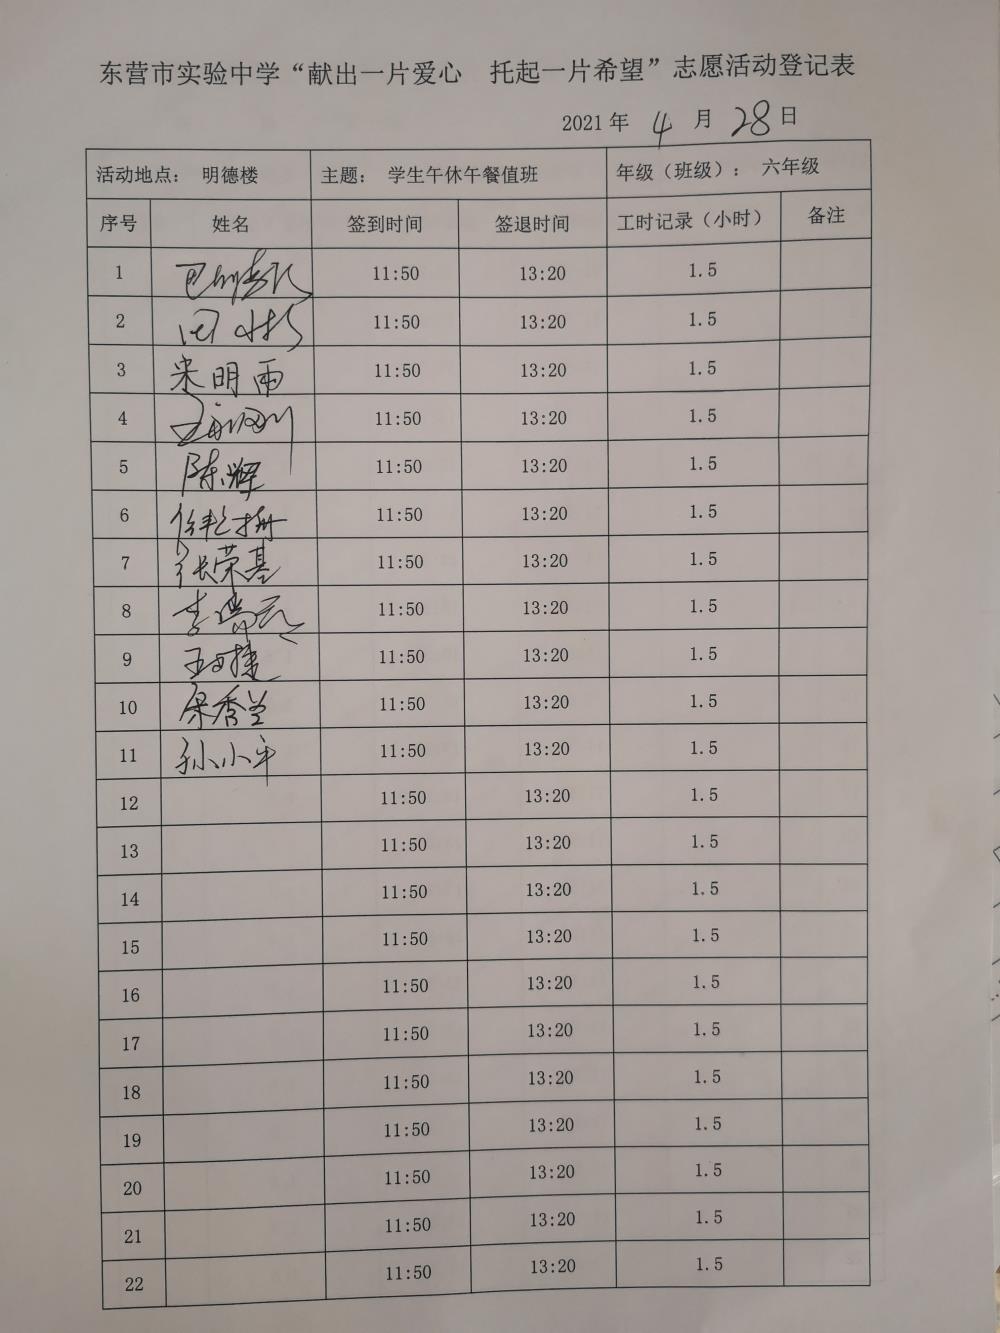 东营市实验中学“献出一片爱心 托起一片希望”志愿活动登记表
2021年 4 月 28 日
活动地点： 明德楼 主题： 学生午休午餐值班 年级（班级）： 六年级
序号 姓名 签到时间 签退时间 工时记录（小时） 备注
1 11:50 13:20 1.5
2 11:50 13:20 1.5
3 米明雨 11:50 13:20 1.5
4 11:50 13:20 1.5
5 陈辉 11:50 13:20 1.5
6 11:50 13:20 1.5
7 张荣基 11:50 13:20 1.5
8 李 11:50 13:20 1.5
9 王 11:50 13:20 1.5
10 香兰 11:50 13:20 1.5
11 孙小平 11:50 13:20 1.5
12 11:50 13:20 1.5
13 11:50 13:20 1.5
14 11:50 13:20 1.5
15 11:50 13:20 1.5
16 11:50 13:20 1.5
17 11:50 13:20 1.5
18 11:50 13:20 1.5
19 11:50 13:20 1.5
20 11:50 13:20 1.5
21 11:50 13:20 1.5
22 11:50 13:20 1.5